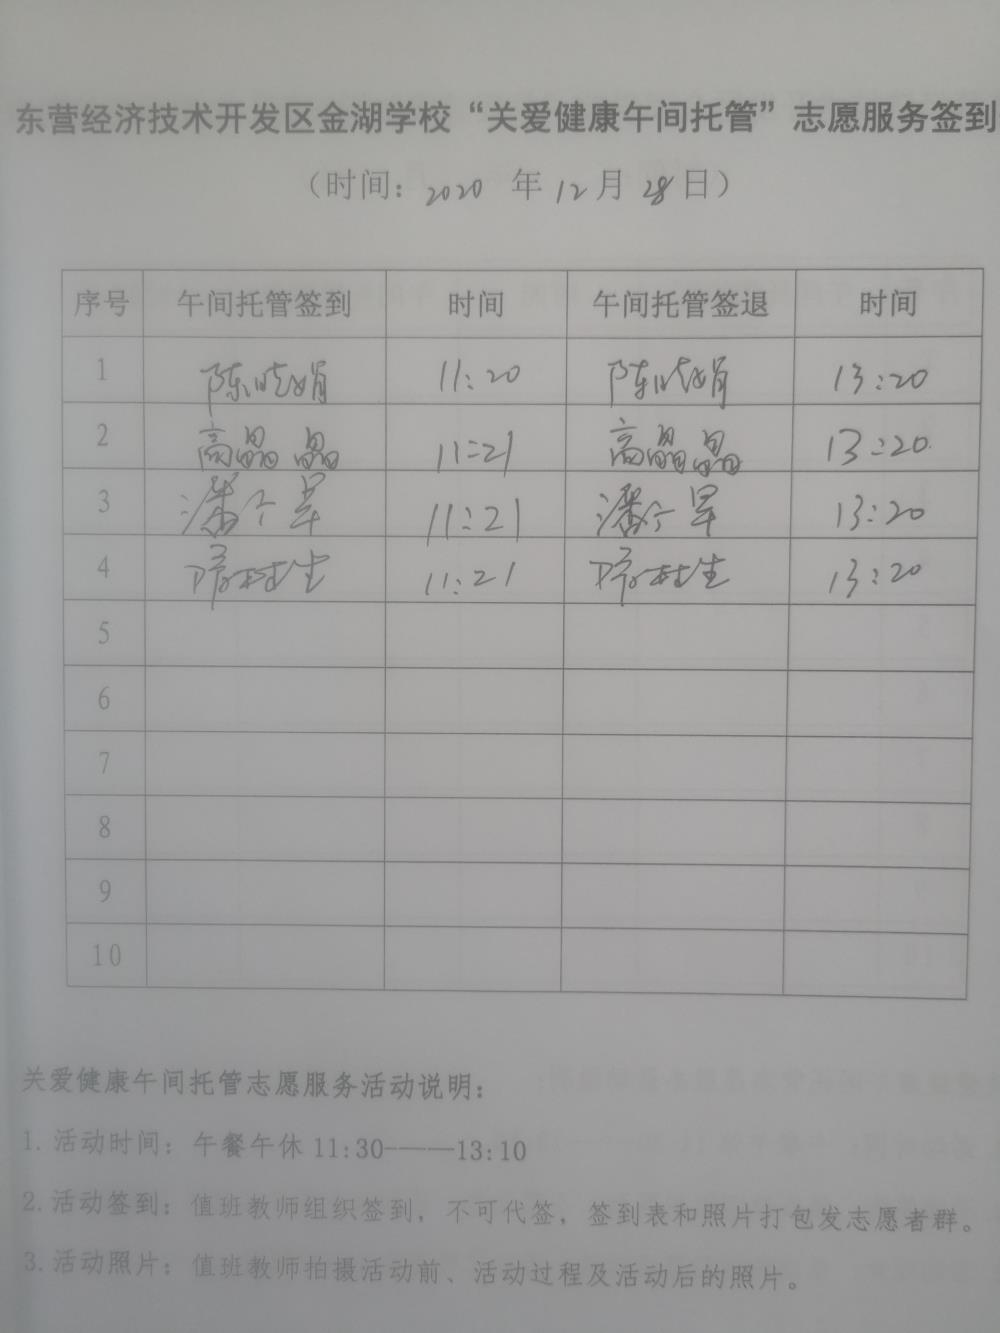 东营经济技术开发区金湖学校“关爱健康午间托管”志愿服务签到
（时间：2020 年 12 月 28 日）
序号 午间托管签到 时间 午间托管签退 时间
1 陈晓娟 11:20 陈晓娟 13:20
2 高晶晶 11:21 高晶晶 13:20
3 潘 11:21 潘 13:20
4 11:21 13:20
5
6
7
8
9
10
关爱健康午间托管志愿服务活动说明：
1. 活动时间：午餐午休 11:30-——13:10
2. 活动签到：值班教师组织签到，不可代签，签到表和照片打包发志愿者群。
3. 活动照片：值班教师拍摄活动前、活动过程及活动后的照片。